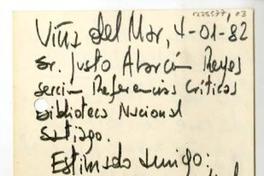 1225577, 03
Viña del Mar, 4-01-82
Sr. Justo Alarcón Reyes
Sección Referencias Críticas
Biblioteca Nacional
Santiago.
Estimado amigo: